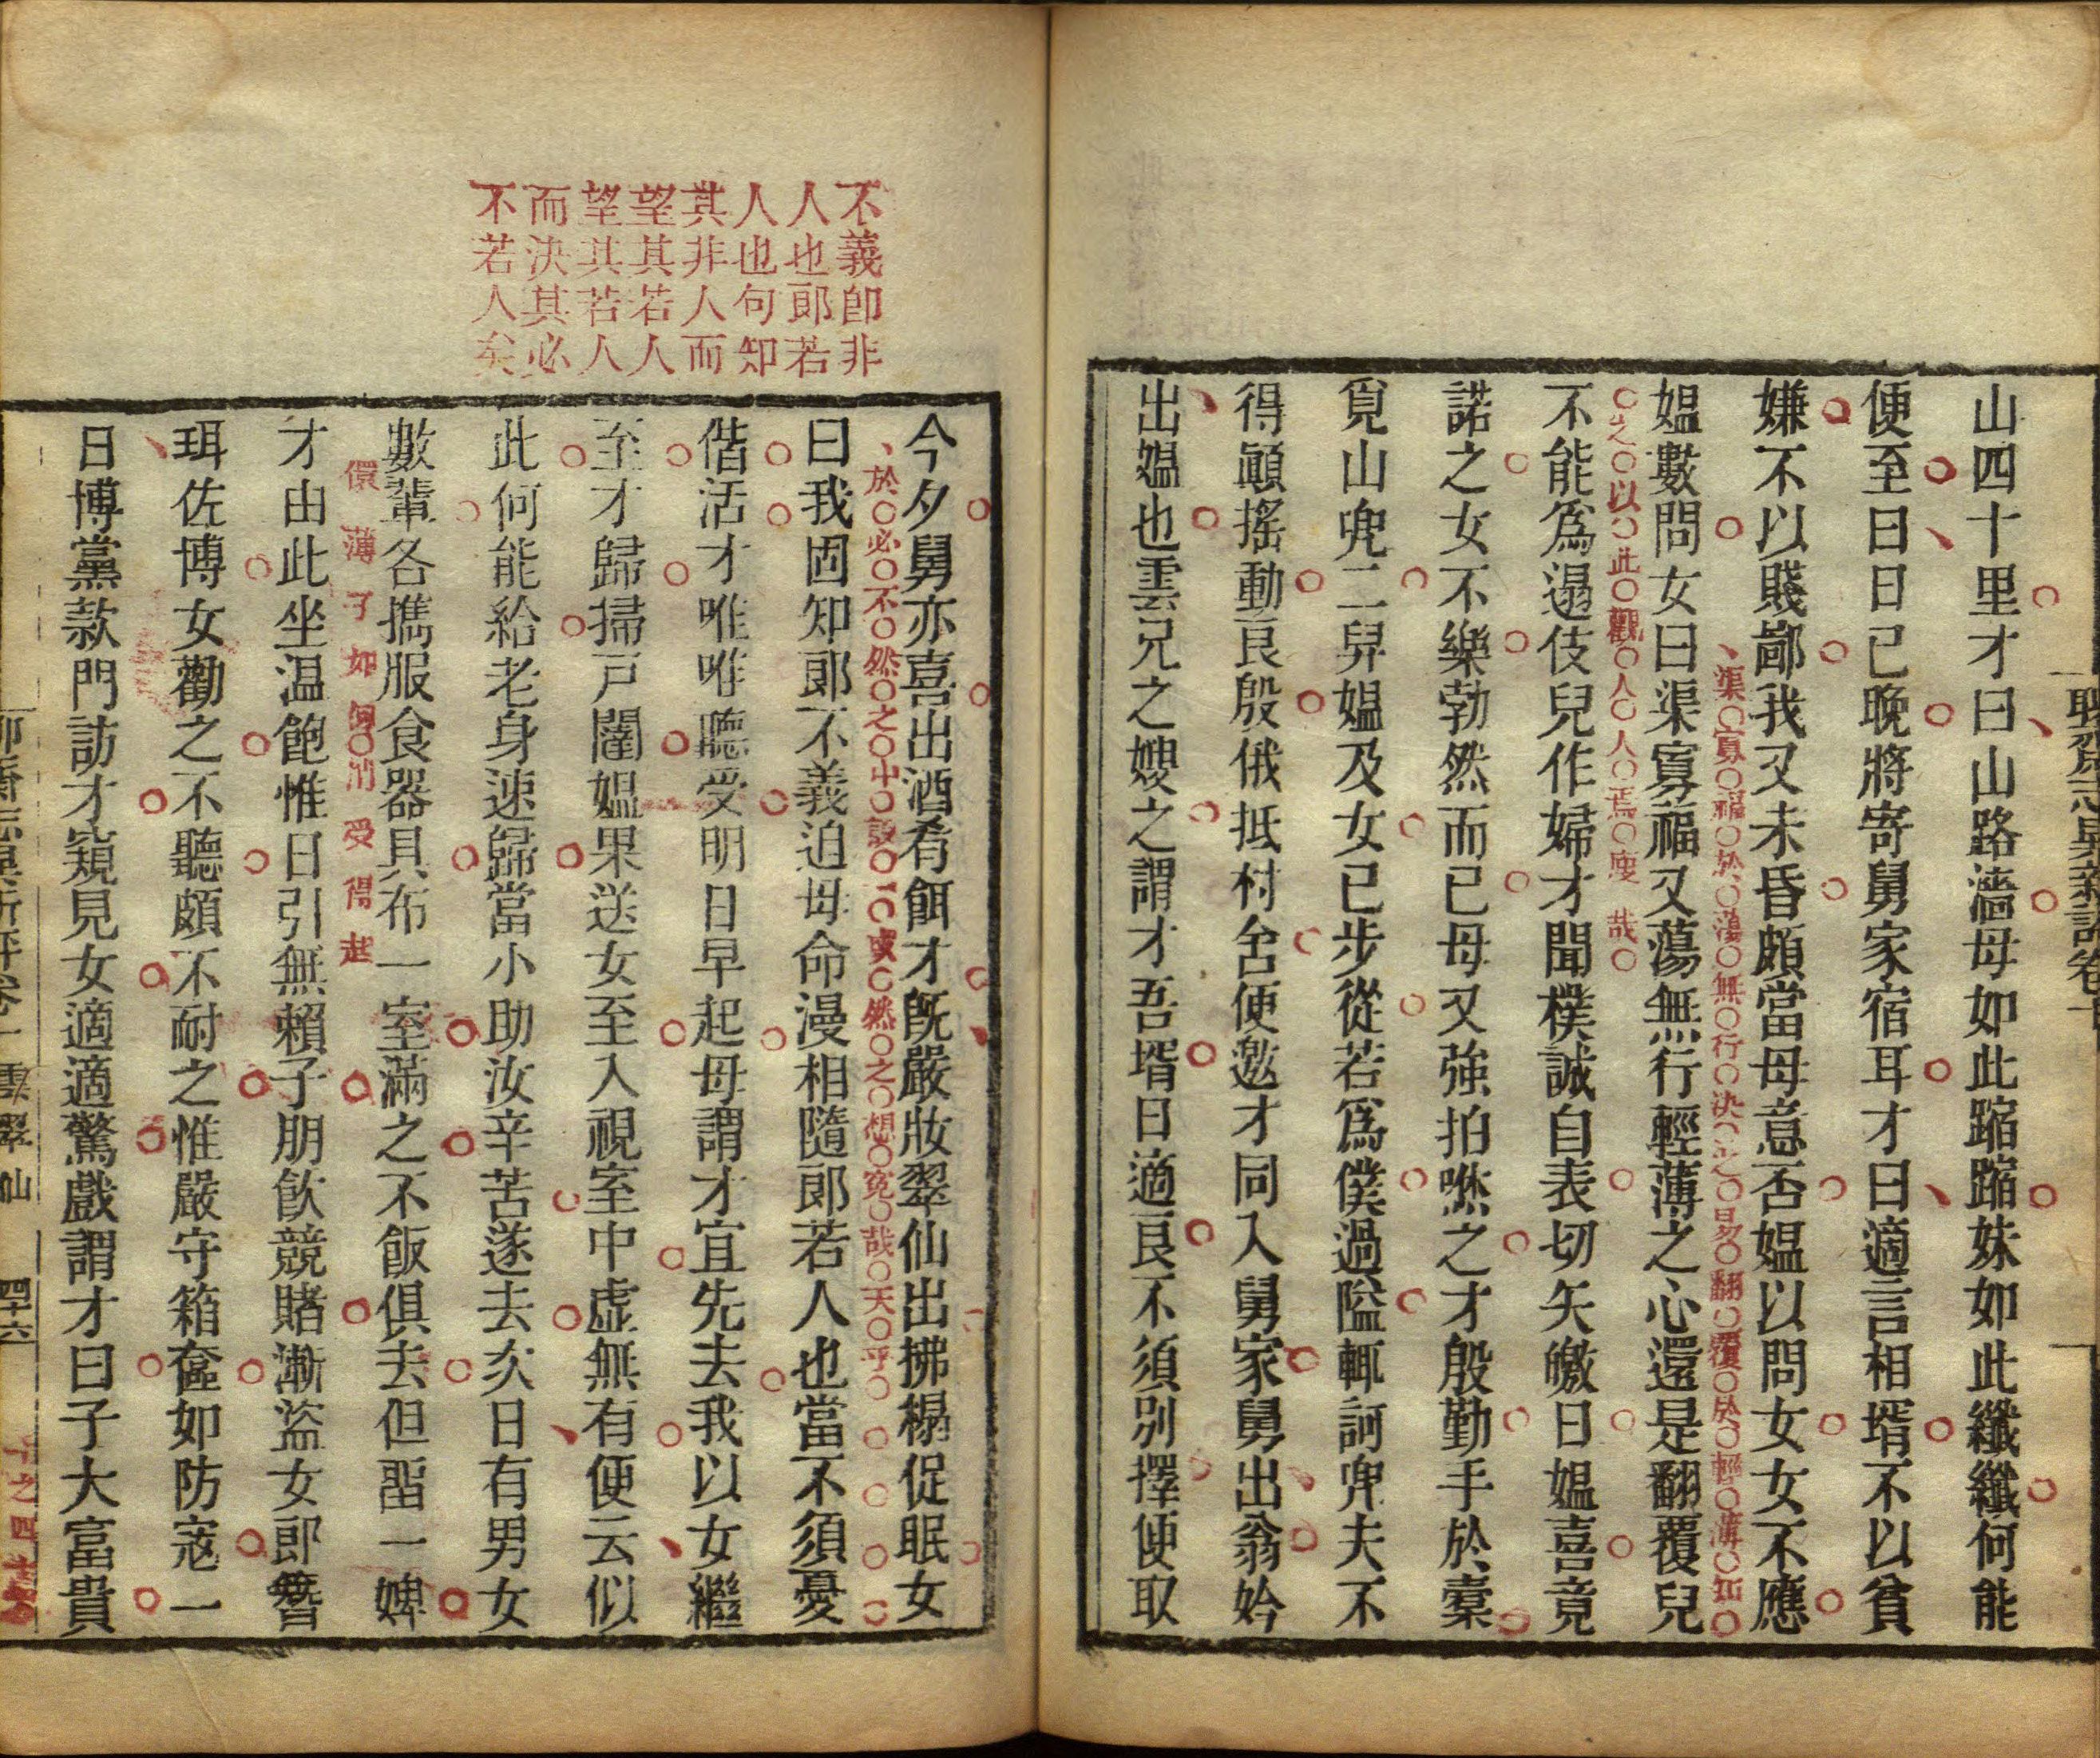 山四十里才曰山路濇母如此蹜蹜妹如此纖纖何能
便至曰日已晚將寄舅家宿耳才曰適言相壻不以貧
嫌不以賤鄙我又未昏頗當母意否媼以問女女不應
渠寡福於蕩無行決之易翻覆於輕薄知
媼數問女曰渠寡福又蕩無行輕薄之心還是翻覆兒
之以此觀人人焉廋哉
不能爲遢伎兒作婦才聞樸誠自表切矢皦日媼喜竟
諾之女不樂勃然而已母又強拍咻之才殷勤手於橐
覓山兜二舁媼及女已步從若爲僕過隘輒訶兜夫不
得顚搖動良殷俄抵村舍便邀才同入舅家舅出翁妗
出媼也雲兄之嫂之謂才吾壻日適良不須別擇便取
不義卽非
人也郞若
人也句知
其非人而
望其若人
望其若人
而決其必
不若人矣
今夕舅亦喜出酒肴餌才旣嚴妝翠仙出拂榻促眠女
於必不然之中設一或然之想冤哉天乎
曰我固知郞不義迫母命漫相隨郞若人也當不須憂
偕活才唯唯聽受明日早起母謂才宜先去我以女繼
至才歸掃戸闥媼果送女至入視室中虛無有便云似
此何能給老身速歸當小助汝辛苦遂去次日有男女
數輩各攜服食器具布一室滿之不飯俱去但畱一婢
儇薄子如何消受得起
才由此坐温飽惟日引無賴子朋飮競賭漸盜女郞簪
珥佐博女勸之不聽頗不耐之惟嚴守箱奩如防寇一
日博黨款門訪才窺見女適適驚戲謂才曰子大富貴
雲翠仙
四十六